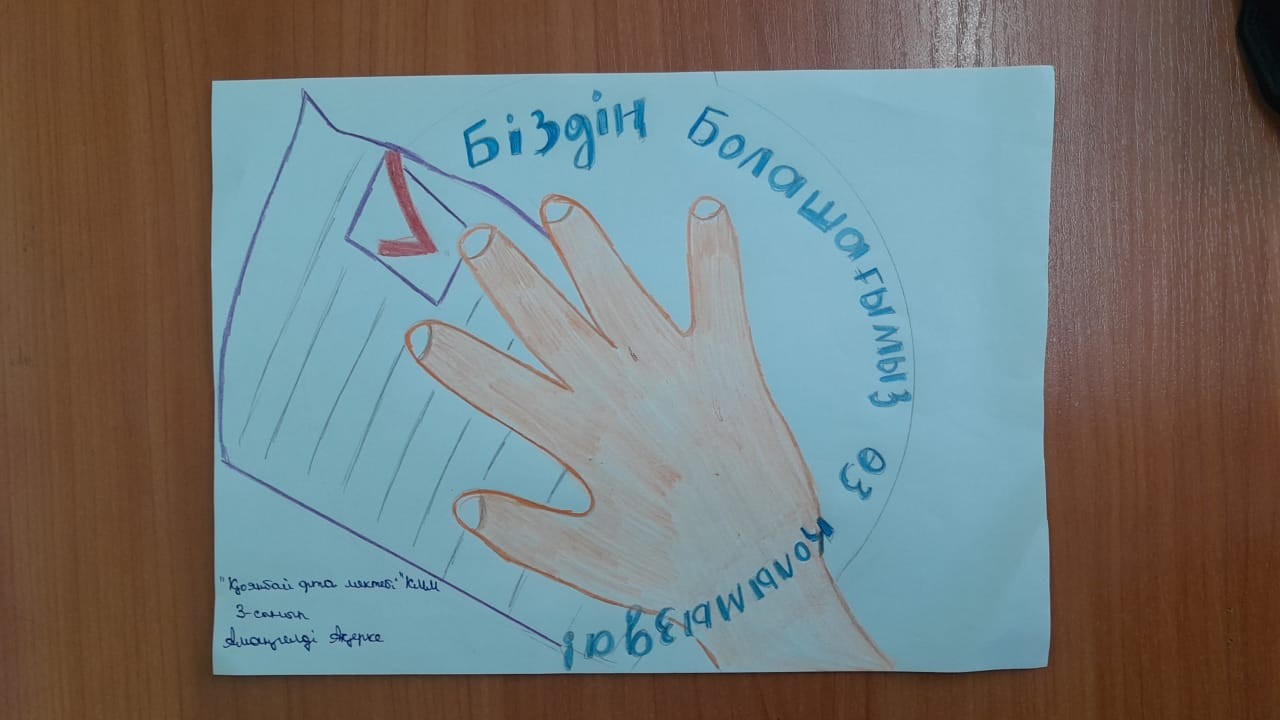 Біздін Болашағымыз өз қолымызда!
"Қоянбай орта мектебі" КММ
3-сынып
Амангелді Ақерке